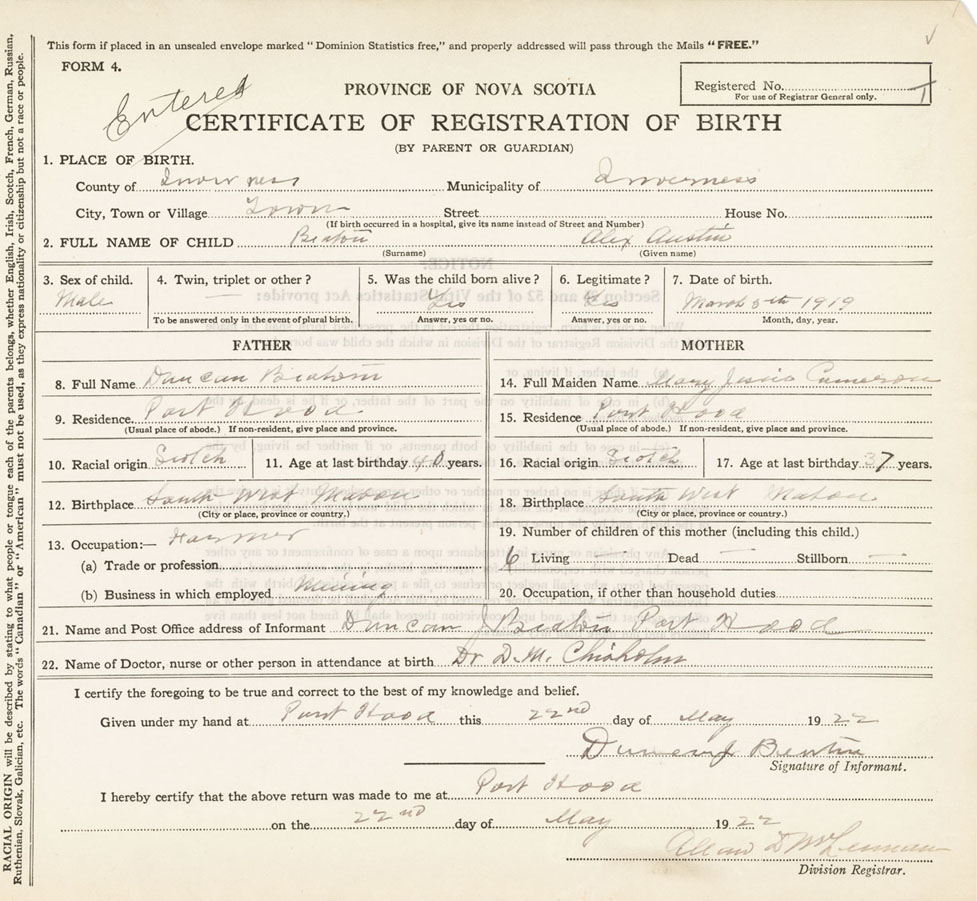 This form if placed in an unsealed envelope marked "Dominion Statistics free," and properly addressed will pass through the Mails "FREE."
FORM 4.
Entered
PROVINCE OF NOVA SCOTIA
Registered No.
For use of Registrar General only.
CERTIFICATE OF REGISTRATION OF BIRTH
(BY PARENT OR GUARDIAN)
1. PLACE OF BIRTH.
County of Inverness Municipality of Inverness
City, Town or Village Town Street House No.
(If birth occurred in a hospital, give its name instead of Street and Number)
2. FULL NAME OF CHILD Beaton Alex Austin
(Surname) (Given name)
3. Sex of child. 4. Twin, triplet or other? 5. Was the child born alive? 6. Legitimate? 7. Date of birth.
Male — Yes Yes March 5th 1919
To be answered only in the event of plural birth. Answer, yes or no. Answer, yes or no. Month, day, year.
FATHER
8. Full Name Duncan Beaton
9. Residence Port Hood
(Usual place of abode.) If non-resident, give place and province.
10. Racial origin Scotch 11. Age at last birthday 40 years.
12. Birthplace South West Mabou
(City or place, province or country.)
13. Occupation:— Farmer
(a) Trade or profession
(b) Business in which employed Mining
MOTHER
14. Full Maiden Name Mary Jessie Cameron
15. Residence Port Hood
(Usual place of abode.) If non-resident, give place and province.
16. Racial origin Scotch 17. Age at last birthday 37 years.
18. Birthplace South West Mabou
(City or place, province or country.)
19. Number of children of this mother (including this child.)
6 Living — Dead — Stillborn —
20. Occupation, if other than household duties
21. Name and Post Office address of Informant Duncan J Beaton Port Hood
22. Name of Doctor, nurse or other person in attendance at birth Dr D. M. Chisholm
I certify the foregoing to be true and correct to the best of my knowledge and belief.
Given under my hand at Port Hood this 22nd day of May 1922
Duncan J Beaton
Signature of Informant.
I hereby certify that the above return was made to me at Port Hood
on the 22nd day of May 1922
Allan D McLennan
Division Registrar.
RACIAL ORIGIN will be described by stating to what people or tongue each of the parents belongs, whether English, Irish, Scotch, French, German, Russian,
Ruthenian, Slovak, Galician, etc. The words "Canadian" or "American" must not be used, as they express nationality or citizenship but not a race or people.